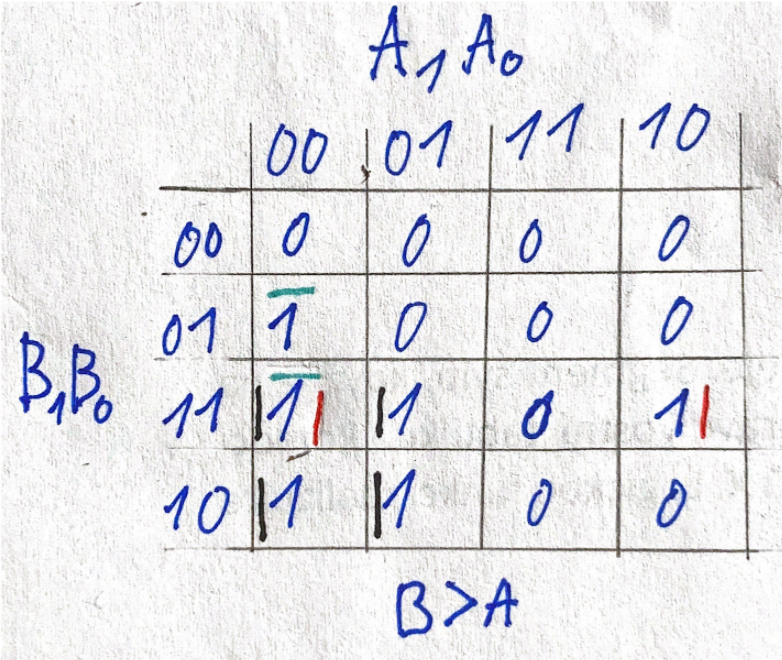 A₁A₀
00 01 11 10
00 0 0 0 0
01 1 0 0 0
B₁B₀
11 1 1 0 1
10 1 1 0 0
B>A